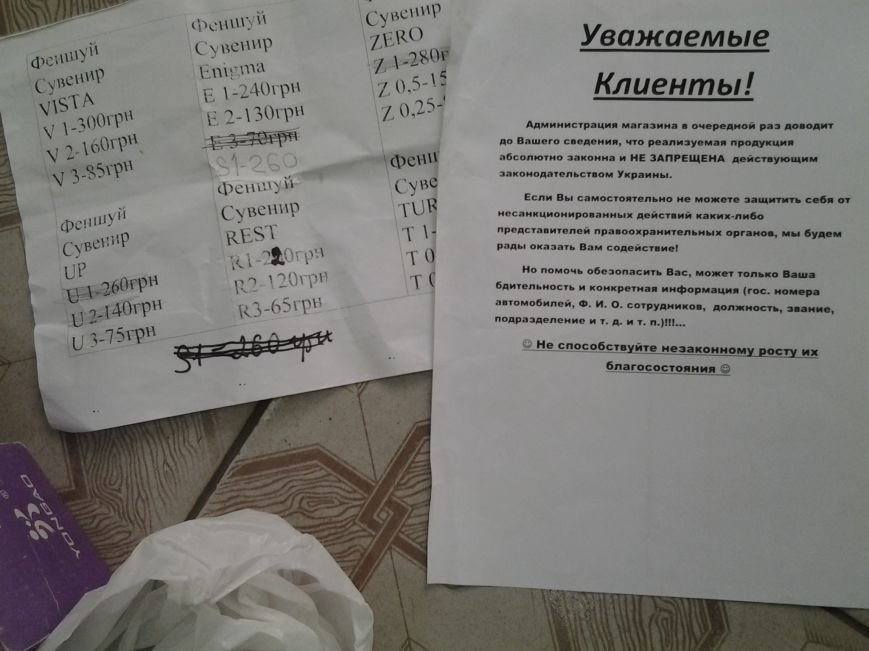 Феншуй
Сувенир
VISTA
V 1-300грн
V 2-160грн
V 3-85грн
Феншуй
Сувенир
Enigma
E 1-240грн
E 2-130грн
E 3-70грн
S1-260
Сувенир
ZERO
Z 1-280г
Z 0,5-15
Z 0,25-
Феншуй
Сувенир
UP
U 1-260грн
U 2-140грн
U 3-75грн
Феншуй
Сувенир
REST
R1-220грн
R2-120грн
R3-65грн
Феншу
Суве
TUR
T 1-
T 0
T 0
S1-260 грн
YONGAO
Уважаемые
Клиенты!
Администрация магазина в очередной раз доводит
до Вашего сведения, что реализуемая продукция
абсолютно законна и НЕ ЗАПРЕЩЕНА действующим
законодательством Украины.
Если Вы самостоятельно не можете защитить себя от
несанкционированных действий каких-либо
представителей правоохранительных органов, мы будем
рады оказать Вам содействие!
Но помочь обезопасить Вас, может только Ваша
бдительность и конкретная информация (гос. номера
автомобилей, Ф. И. О. сотрудников, должность, звание,
подразделение и т. д. и т. п.)!!!...
☺ Не способствуйте незаконному росту их
благосостояния ☺